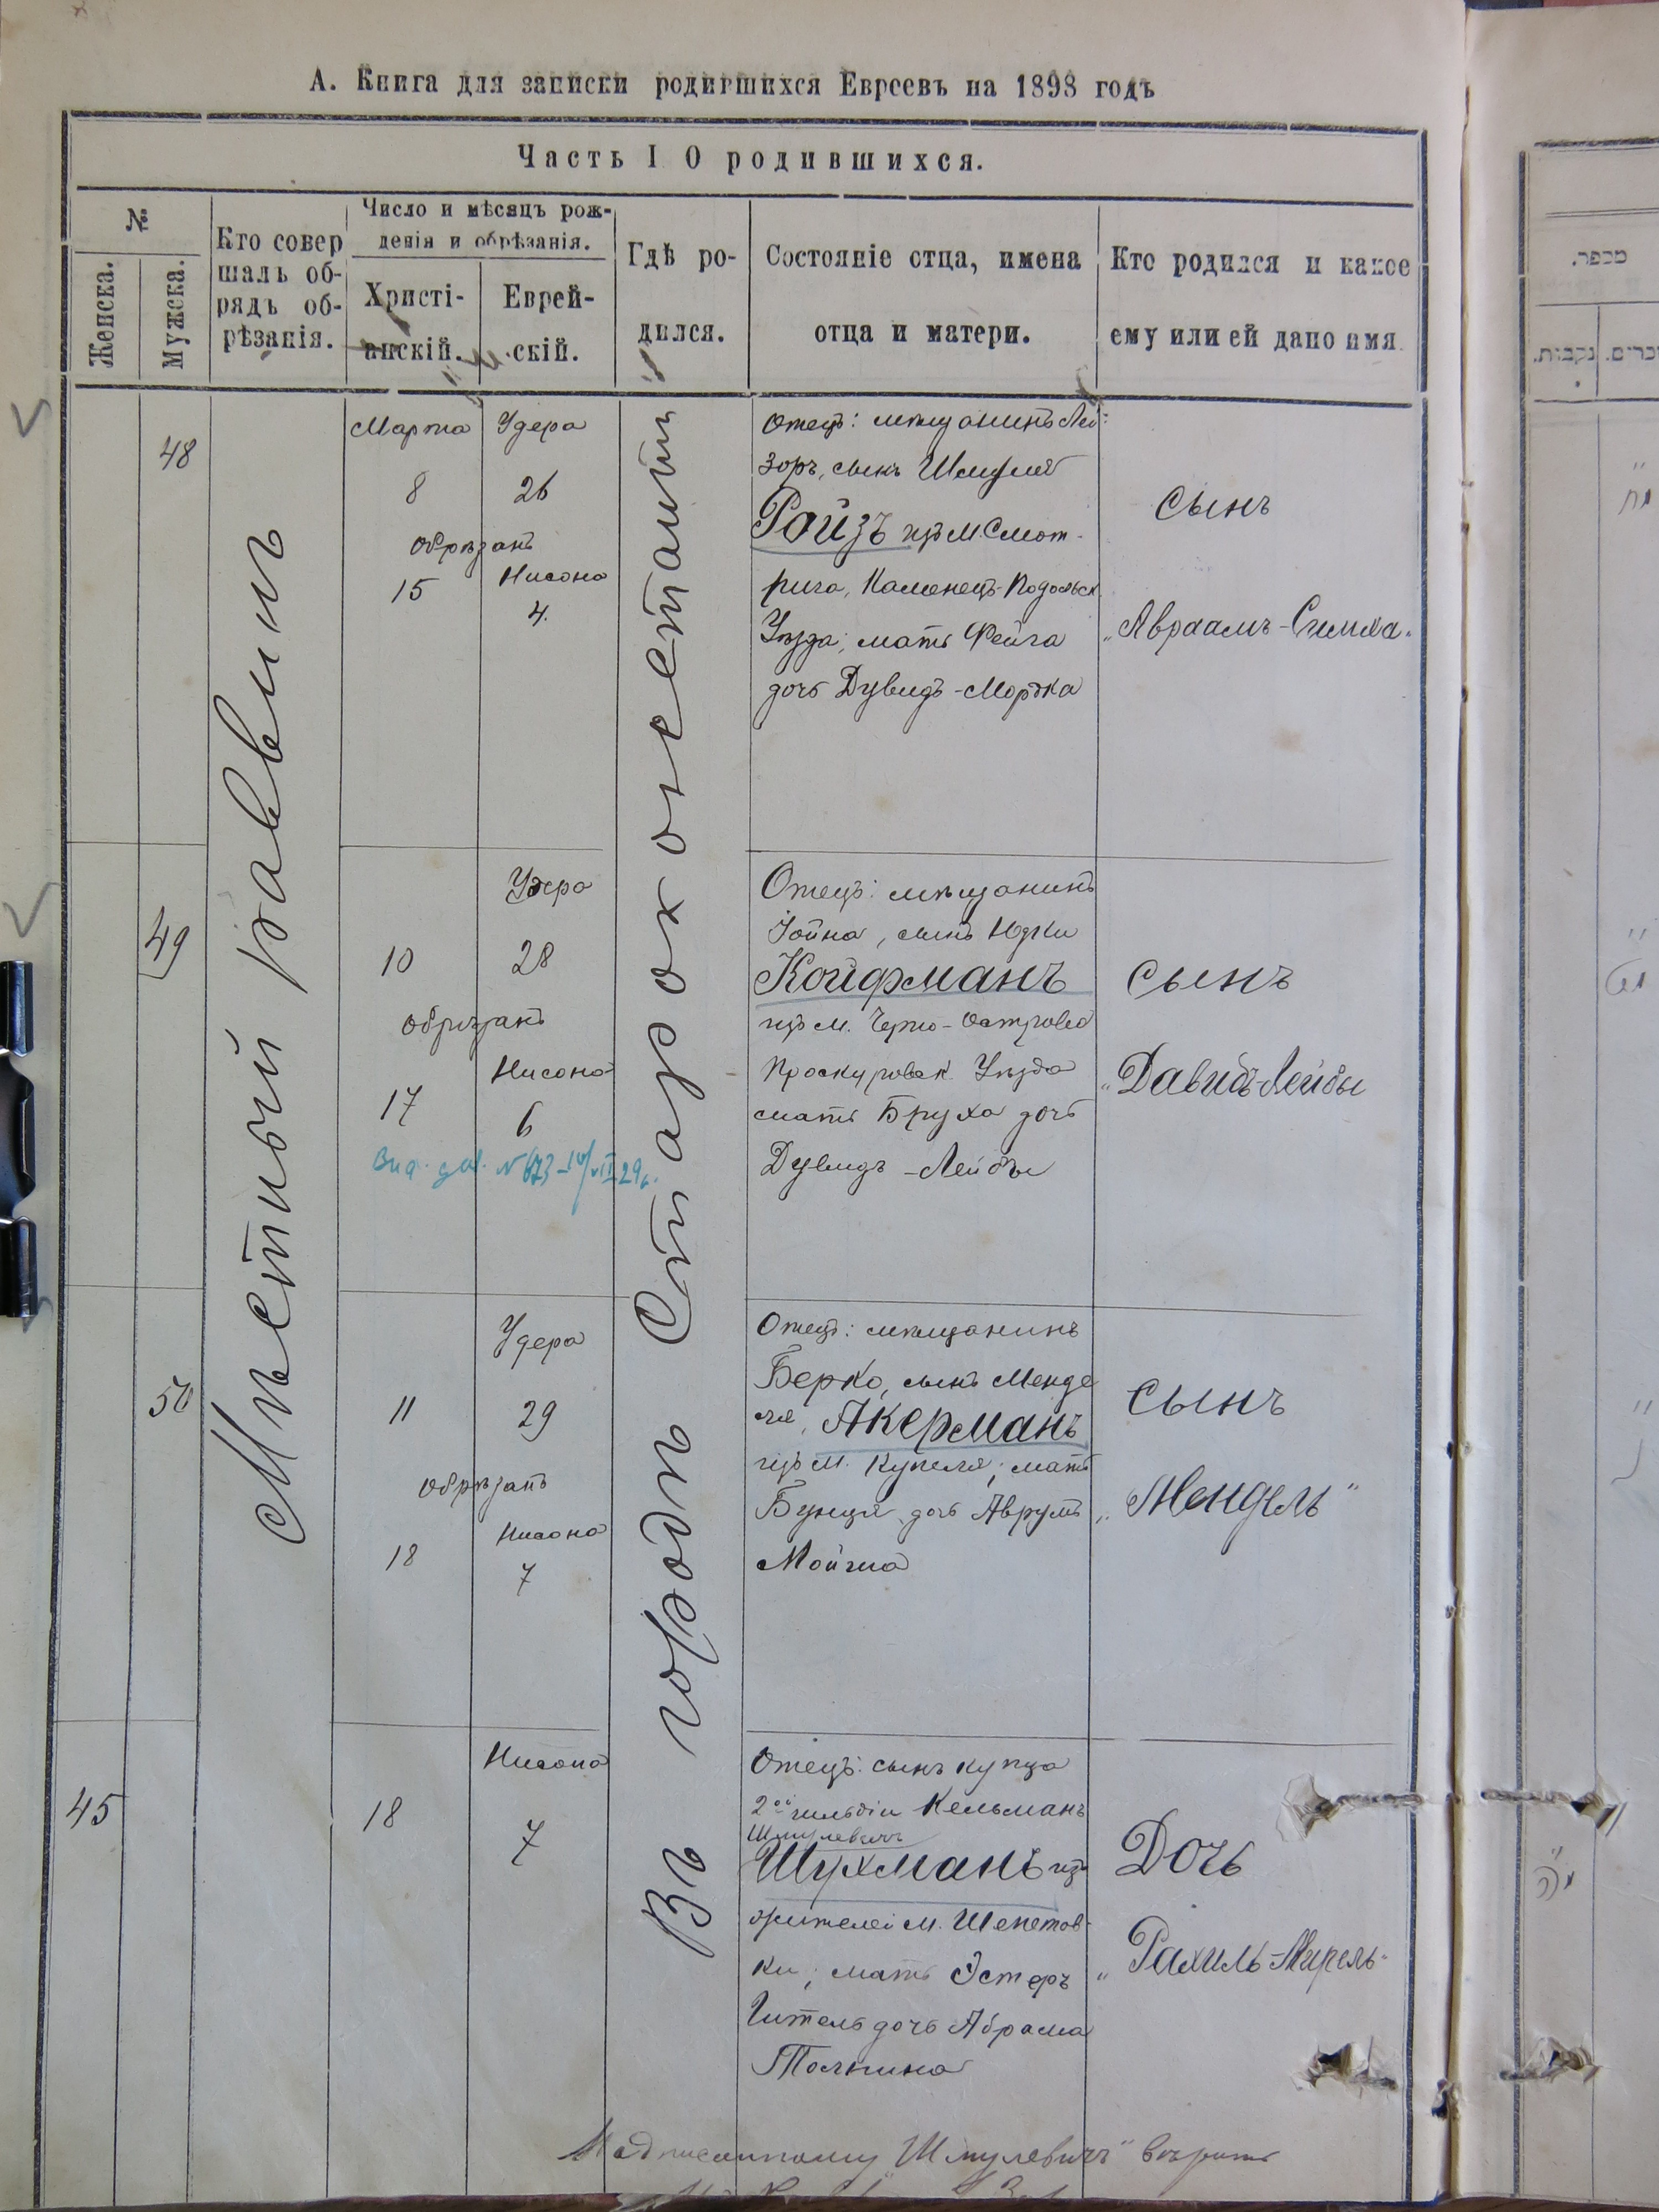 А. Книга для записки родившихся Евреевъ на 1898 годъ
Часть I О родившихся.
№
Женска.
Мужска.
Кто совер
шалъ об-
рядъ об-
рѣзанія.
Число и мѣсяцъ рож-
денія и обрѣзанія.
Христі-
анскій.
Еврей-
скій.
Гдѣ ро-
дился.
Состояніе отца, имена
отца и матери.
Кто родился и какое
ему или ей дано имя.
Мѣстный раввинъ
Въ городѣ Староконстант
48
Марта
8
обрѣзанъ
15
Удера
26
Нисона
4.
Отецъ: мѣщанинъ Лей-
зоръ, сынъ Шмуля
Ройзъ изъ м. Смот-
рича, Каменецъ-Подольск
Уѣзда; мать Фейга
дочь Дувидъ-Мордка
Сынъ
„Авраамъ-Симха"
49
10
обрѣзанъ
17
Удера
28
Нисона
6
Отецъ: мѣщанинъ
Іойна, сынъ Юдки
Койфманъ
изъ м. Черно-Острова
Проскуровск. Уѣзда
мать Бруха дочь
Дувидъ-Лейбы
Сынъ
„Давидъ-Лейбы
50
11
обрѣзанъ
18
Удера
29
Нисона
7
Отецъ: мѣщанинъ
Берко, сынъ Менде
ля, Акерманъ
изъ м. Купеля; мать
Бунця, дочь Аврумъ
Мойша
Сынъ
„Мендель"
45
18
Нисона
7
Отецъ: сынъ купца
2ой гильдіи Кельманъ
Шмулевичъ
Шухманъ изъ
жителей м. Шепетов-
ки; мать Эстеръ
Гитель дочь Абрама
Дочь
„Рахиль-Мирель"
Надписанному „Шмулевичъ" вѣрить
מספר.
נקבות.
זכרים.